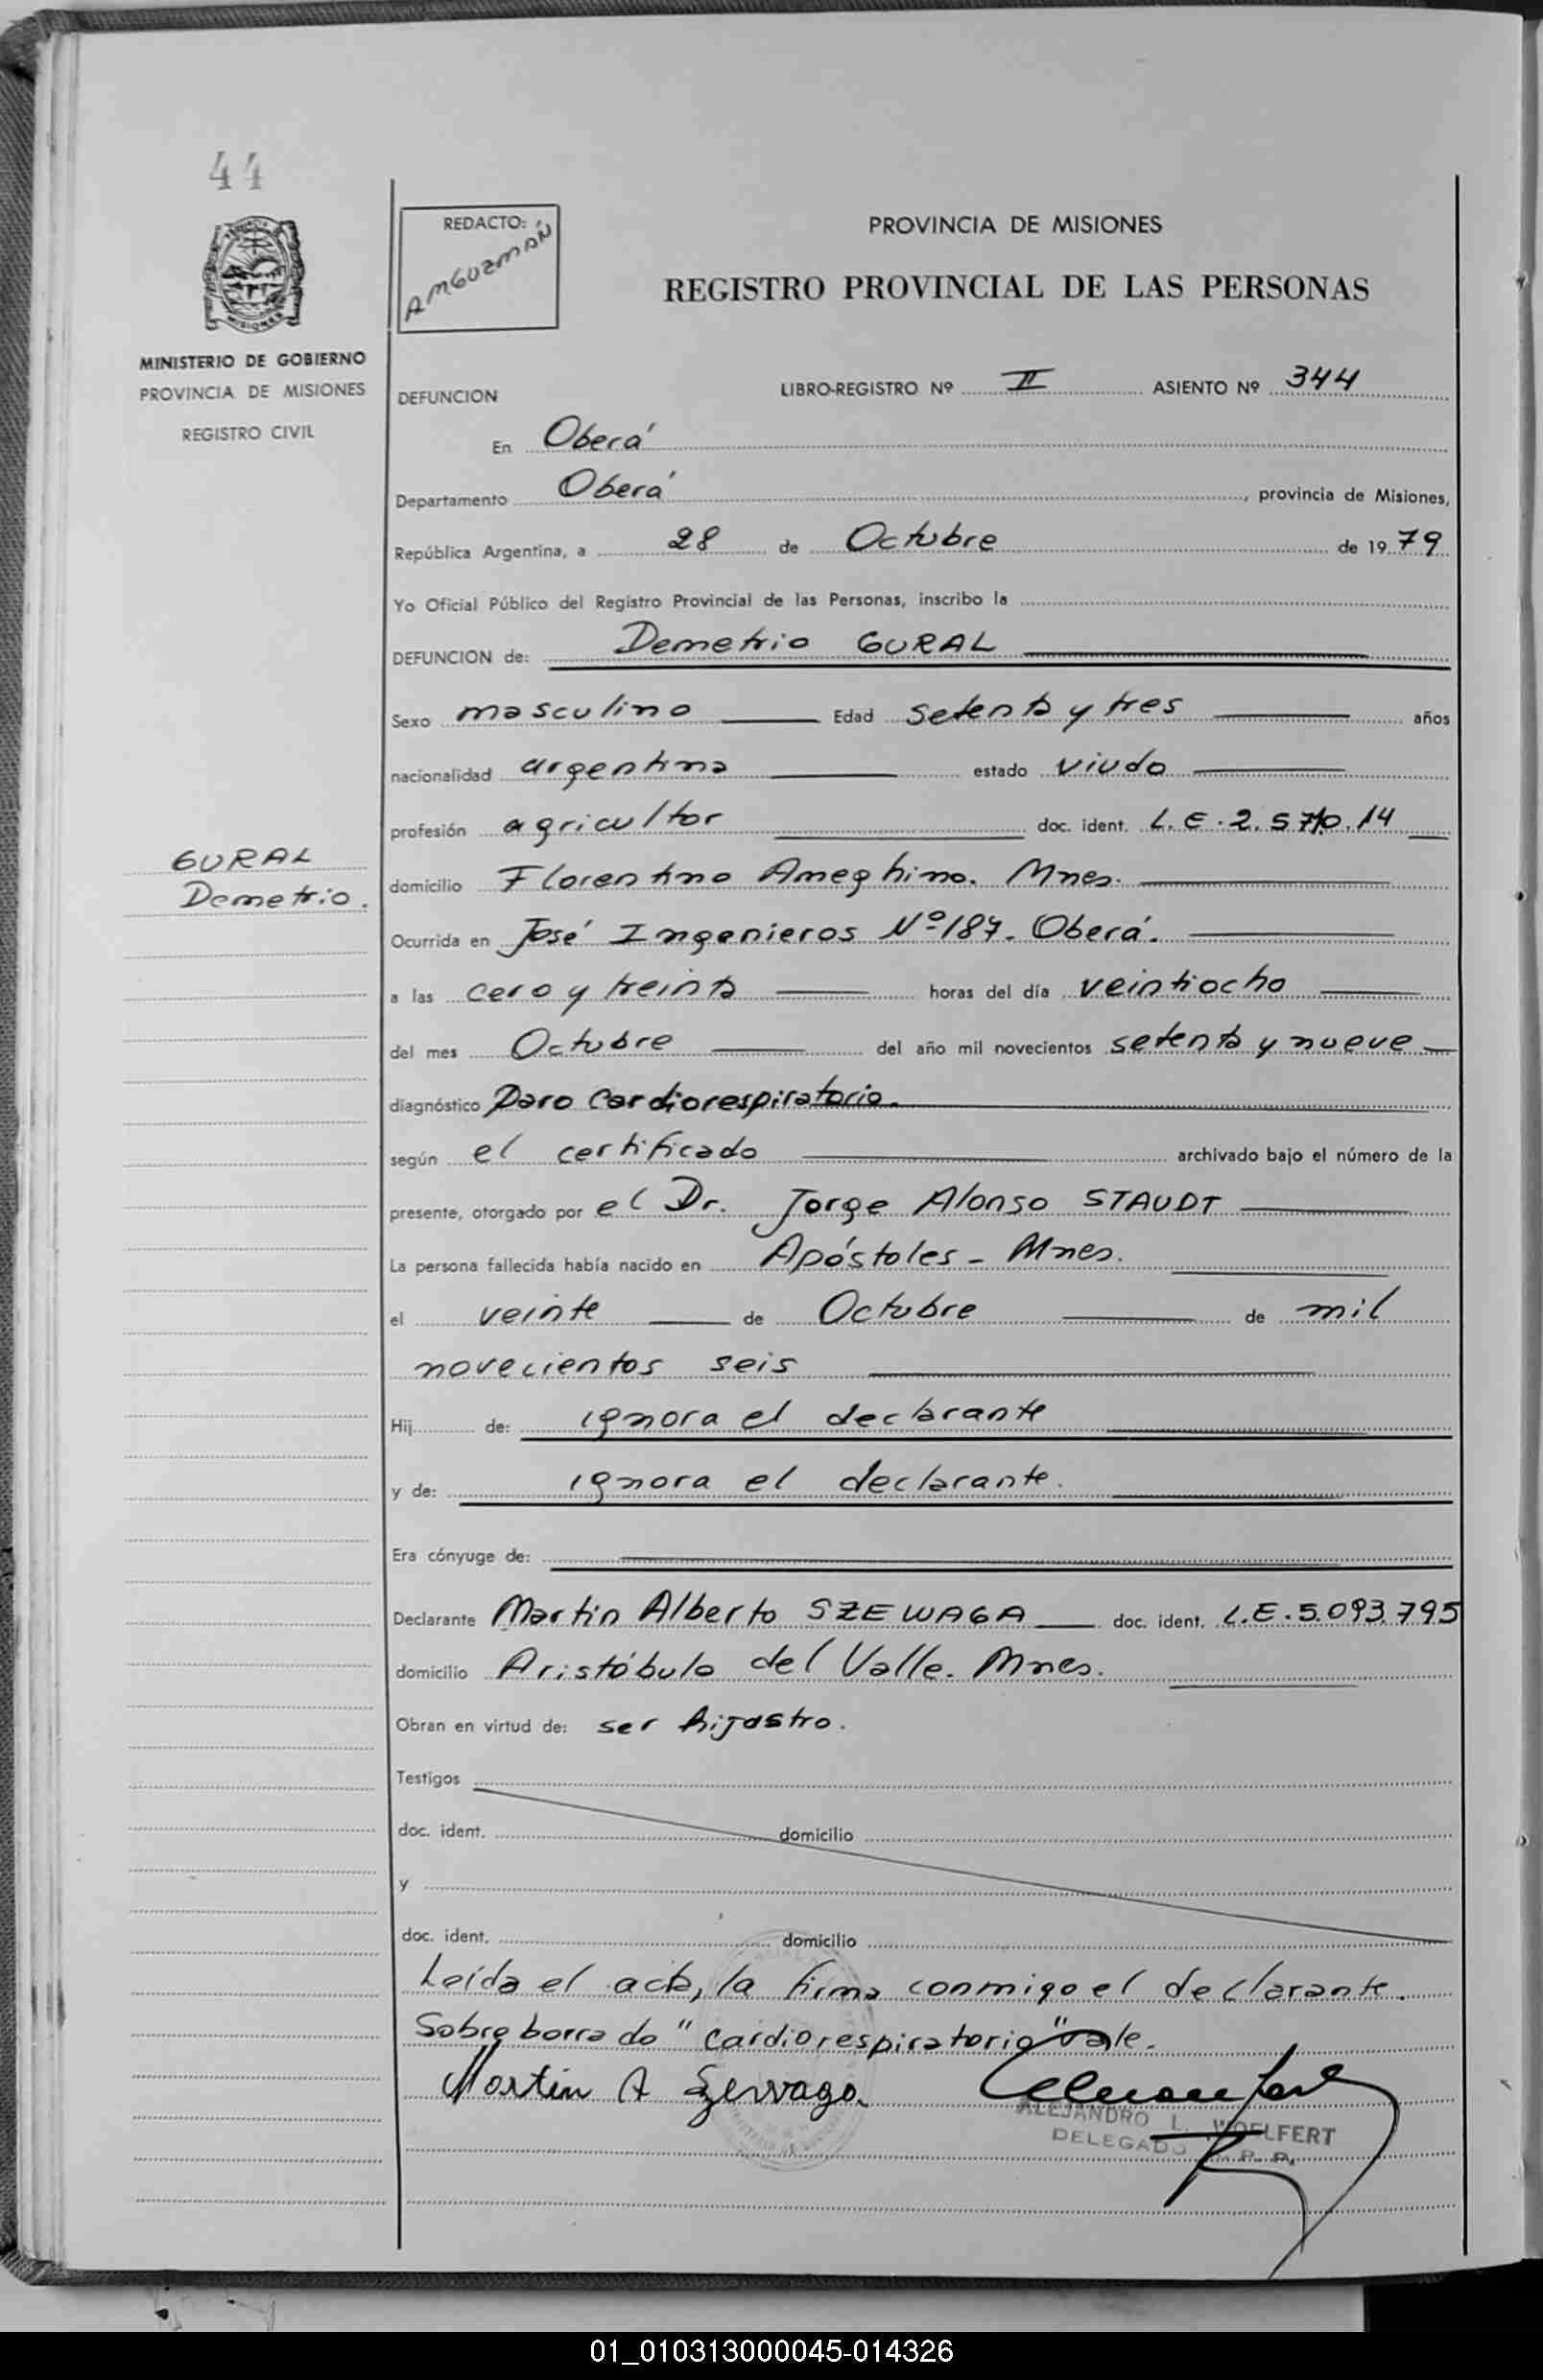 44
REDACTO:
AMGUZMAN
PROVINCIA DE MISIONES
REGISTRO PROVINCIAL DE LAS PERSONAS
MISIONES
MINISTERIO DE GOBIERNO
PROVINCIA DE MISIONES
REGISTRO CIVIL
DEFUNCION LIBRO-REGISTRO Nº II ASIENTO Nº 344
En Oberá
Departamento Oberá, provincia de Misiones,
República Argentina, a 28 de Octubre de 1979
Yo Oficial Público del Registro Provincial de las Personas, inscribo la
DEFUNCION de: Demetrio GURAL
Sexo masculino Edad setenta y tres años
nacionalidad argentina estado viudo
profesión agricultor doc. ident. L.E.
GURAL
Demetrio.
domicilio Florentino Ameghino. Mnes.
Ocurrida en José Ingenieros Nº 187. Oberá.
a las cero y treinta horas del día veintiocho
del mes Octubre del año mil novecientos setenta y nueve
diagnóstico Paro Cardiorespiratorio.
según el certificado archivado bajo el número de la
presente, otorgado por el Dr. Jorge Alonso STAUDT
La persona fallecida había nacido en Apóstoles - Mnes.
el veinte de Octubre de mil
novecientos seis
Hij de: ignora el declarante
y de: ignora el declarante.
Era cónyuge de:
Declarante Martin Alberto SZEWAGA doc. ident. L.E.5.093.795
domicilio Aristóbulo del Valle. Mnes.
Obran en virtud de: ser hijastro.
Testigos
doc. ident. domicilio
y
doc. ident. domicilio
Leída el acta, la firma conmigo el declarante.
Sobre borrado "cardiorespiratorio" vale.
Martin A
ALEJANDRO L. WOELFERT
DELEGADO R. P. P.
01_010313000045-014326